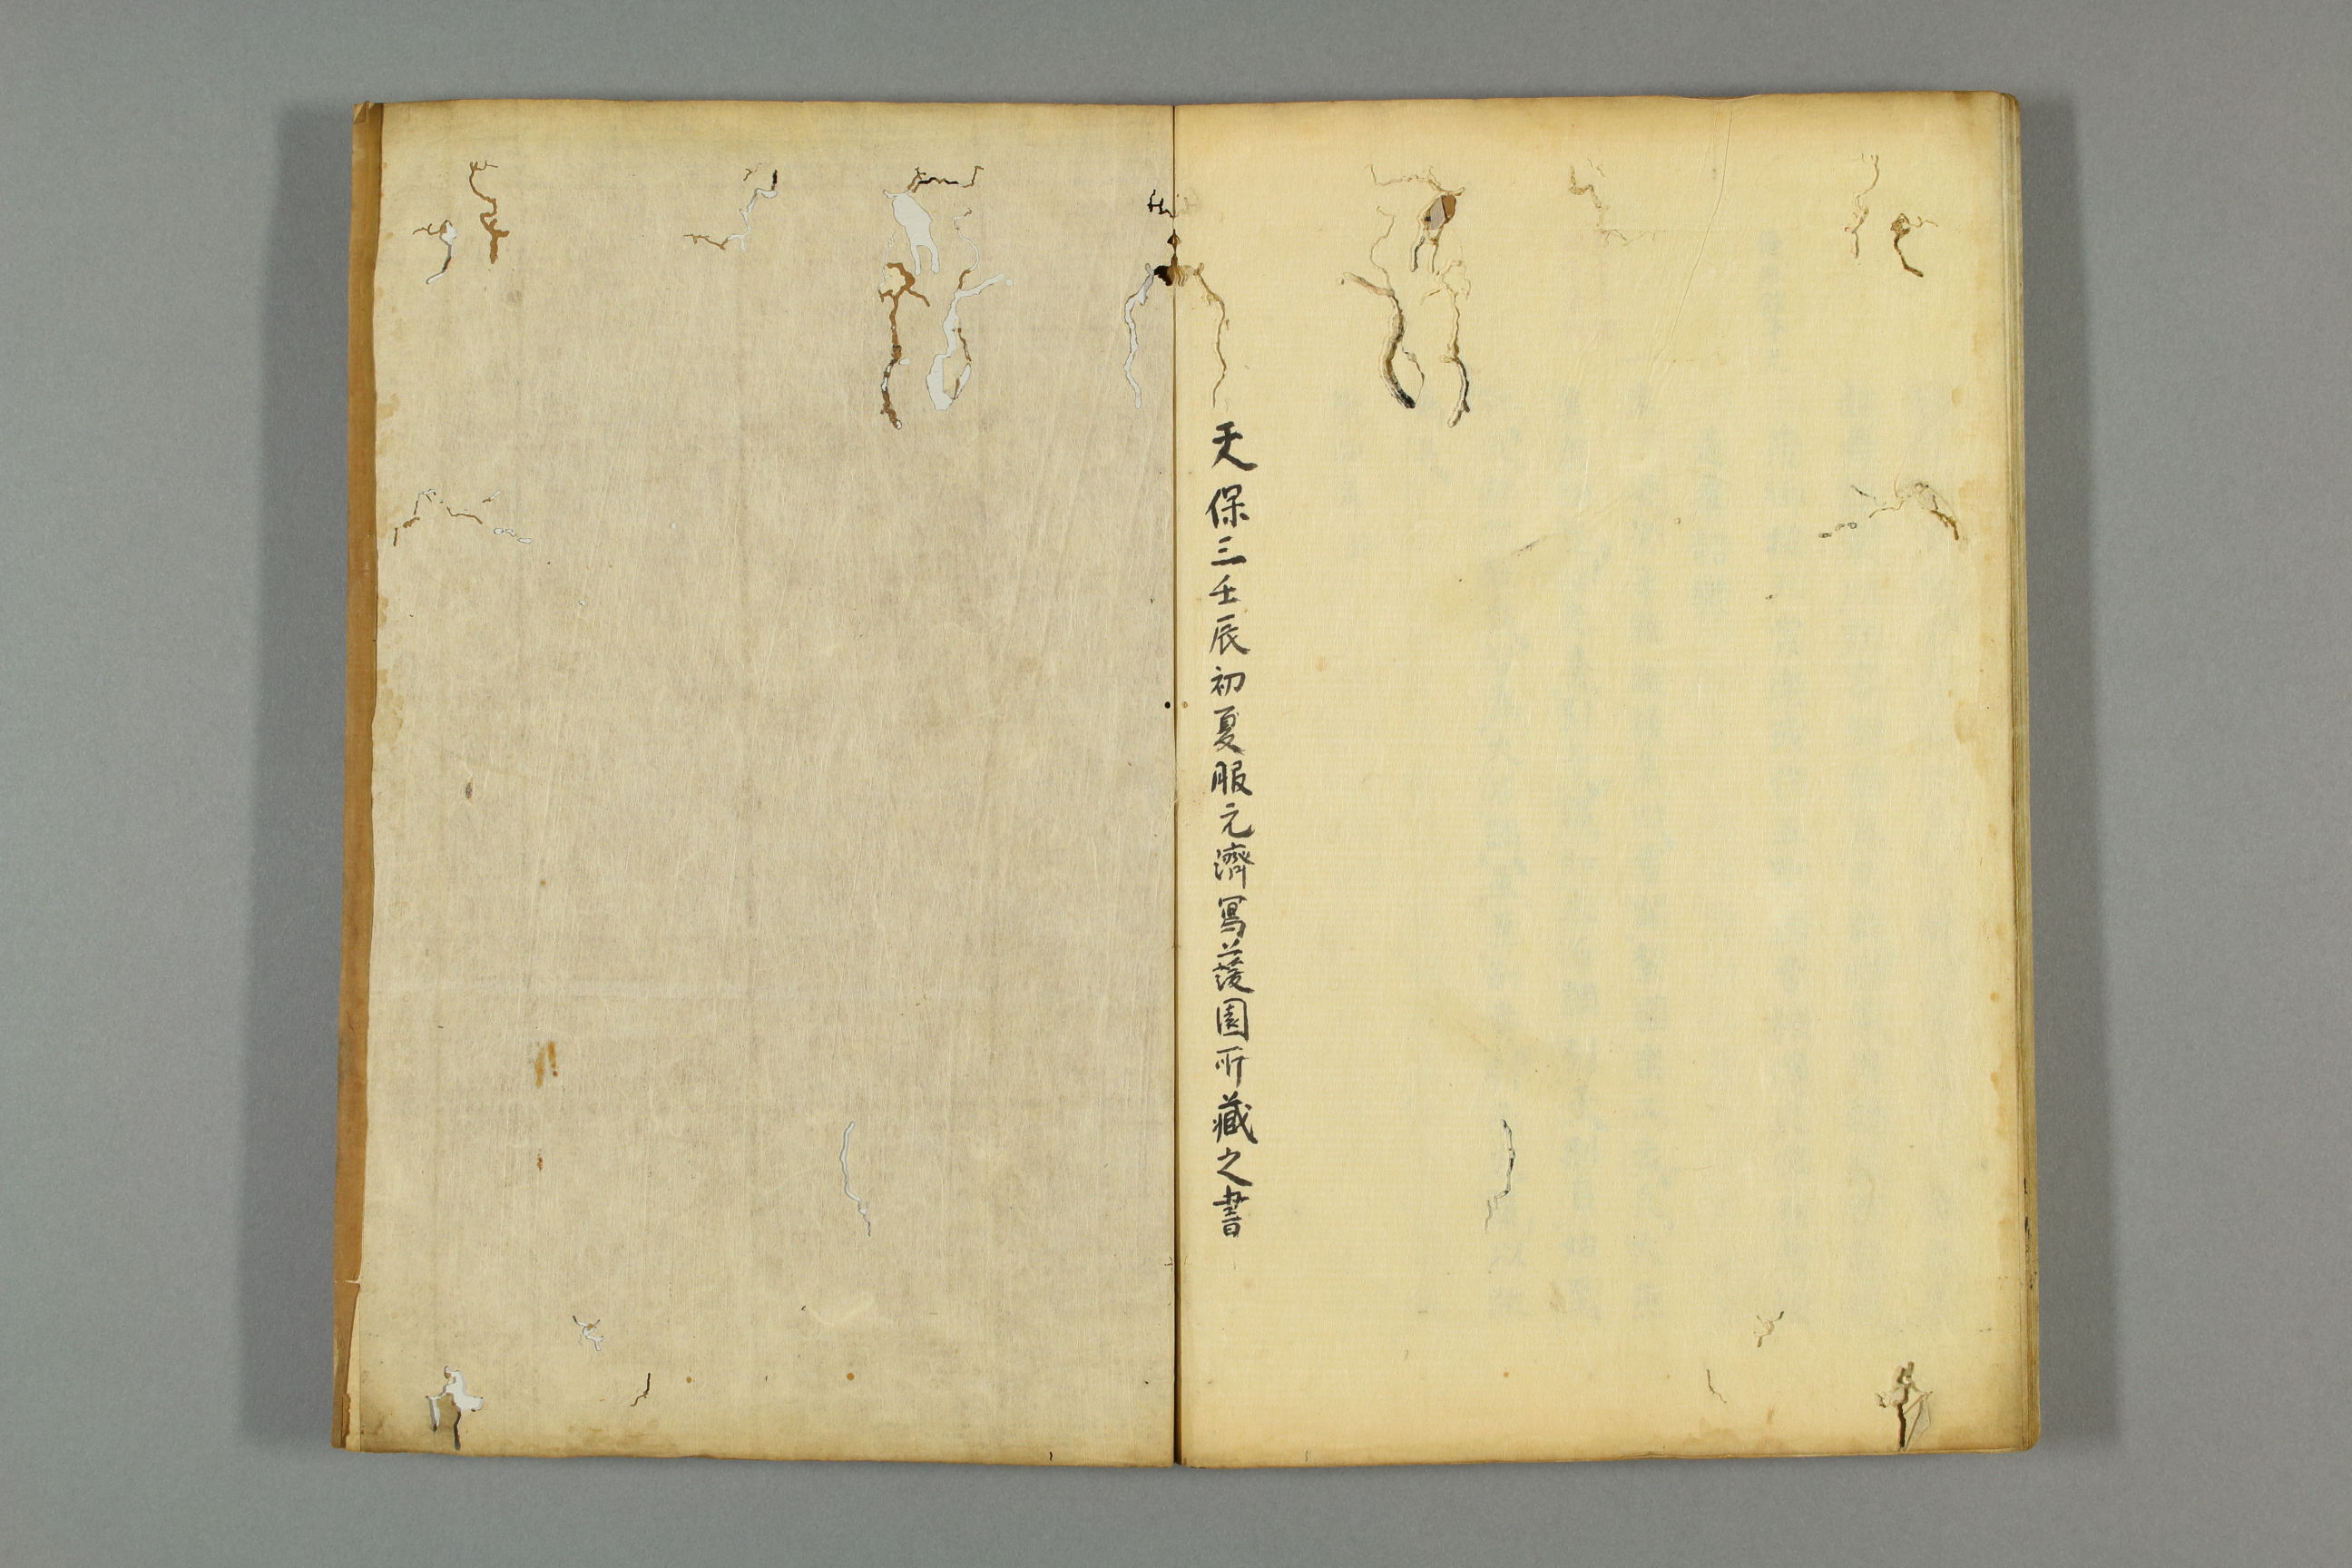 天保三壬辰初夏服元濟寫蘐園所藏之書